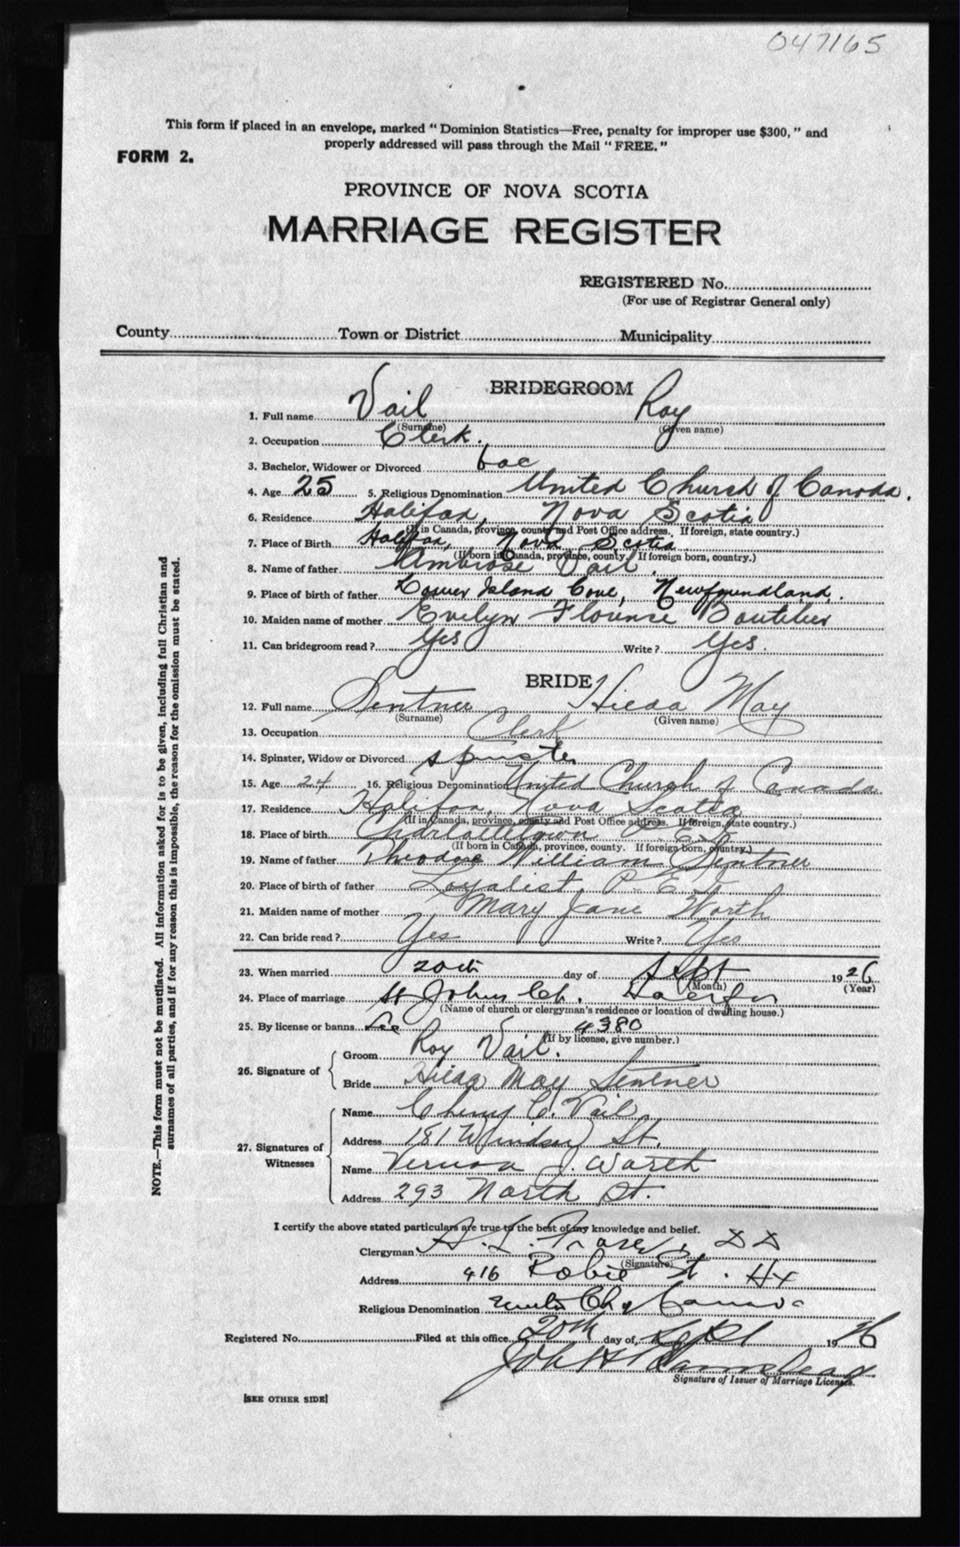 047165
This form if placed in an envelope, marked "Dominion Statistics—Free, penalty for improper use $300," and
properly addressed will pass through the Mail "FREE."
FORM 2.
PROVINCE OF NOVA SCOTIA
MARRIAGE REGISTER
REGISTERED No.
(For use of Registrar General only)
County Town or District Municipality
BRIDEGROOM
1. Full name Vail Roy
(Surname) (Given name)
2. Occupation Clerk.
3. Bachelor, Widower or Divorced bac
4. Age 25 5. Religious Denomination United Church of Canada.
6. Residence Halifax, Nova Scotia
(If in Canada, province, county and Post Office address. If foreign, state country.)
7. Place of Birth Halifax, Nova Scotia
(If born in Canada, province, county. If foreign born, country.)
8. Name of father Ambrose Vail.
9. Place of birth of father Lower Island Cove, Newfoundland.
10. Maiden name of mother Evelyn Boutilier
11. Can bridegroom read? Yes Write? Yes.
BRIDE
12. Full name Sentner Hilda May
(Surname) (Given name)
13. Occupation Clerk
14. Spinster, Widow or Divorced spinster
15. Age 24 16. Religious Denomination United Church of Canada
17. Residence Halifax, Nova Scotia
(If in Canada, province, county and Post Office address. If foreign, state country.)
18. Place of birth Charlottetown P.E.I.
(If born in Canada, province, county. If foreign born, country.)
19. Name of father Theodore William Sentner
20. Place of birth of father Loyalist, P.E.I.
21. Maiden name of mother Mary Jane Worth
22. Can bride read? Yes Write? Yes
23. When married 20th day of Sept 1926
(Month) (Year)
24. Place of marriage St Johns Ch. Halifax
(Name of church or clergyman's residence or location of dwelling house.)
25. By license or banns Lic 4380
(If by license, give number.)
26. Signature of
Groom Roy Vail.
Bride Hilda May Sentner
27. Signatures of Witnesses
Name C. Vail
Address 181 Windsor St.
Name Vernon J. Worth
Address 293 North St.
I certify the above stated particulars are true to the best of my knowledge and belief.
Clergyman A. L. Fraser, DD
(Signature)
Address 416 Robie St. Hx
Religious Denomination United Ch of Canada
Registered No. Filed at this office 20th day of Sept 1926
Signature of Issuer of Marriage Licenses.
[SEE OTHER SIDE]
NOTE.—This form must not be mutilated. All information asked for is to be given, including full Christian and
surnames of all parties, and if for any reason this is impossible, the reason for the omission must be stated.